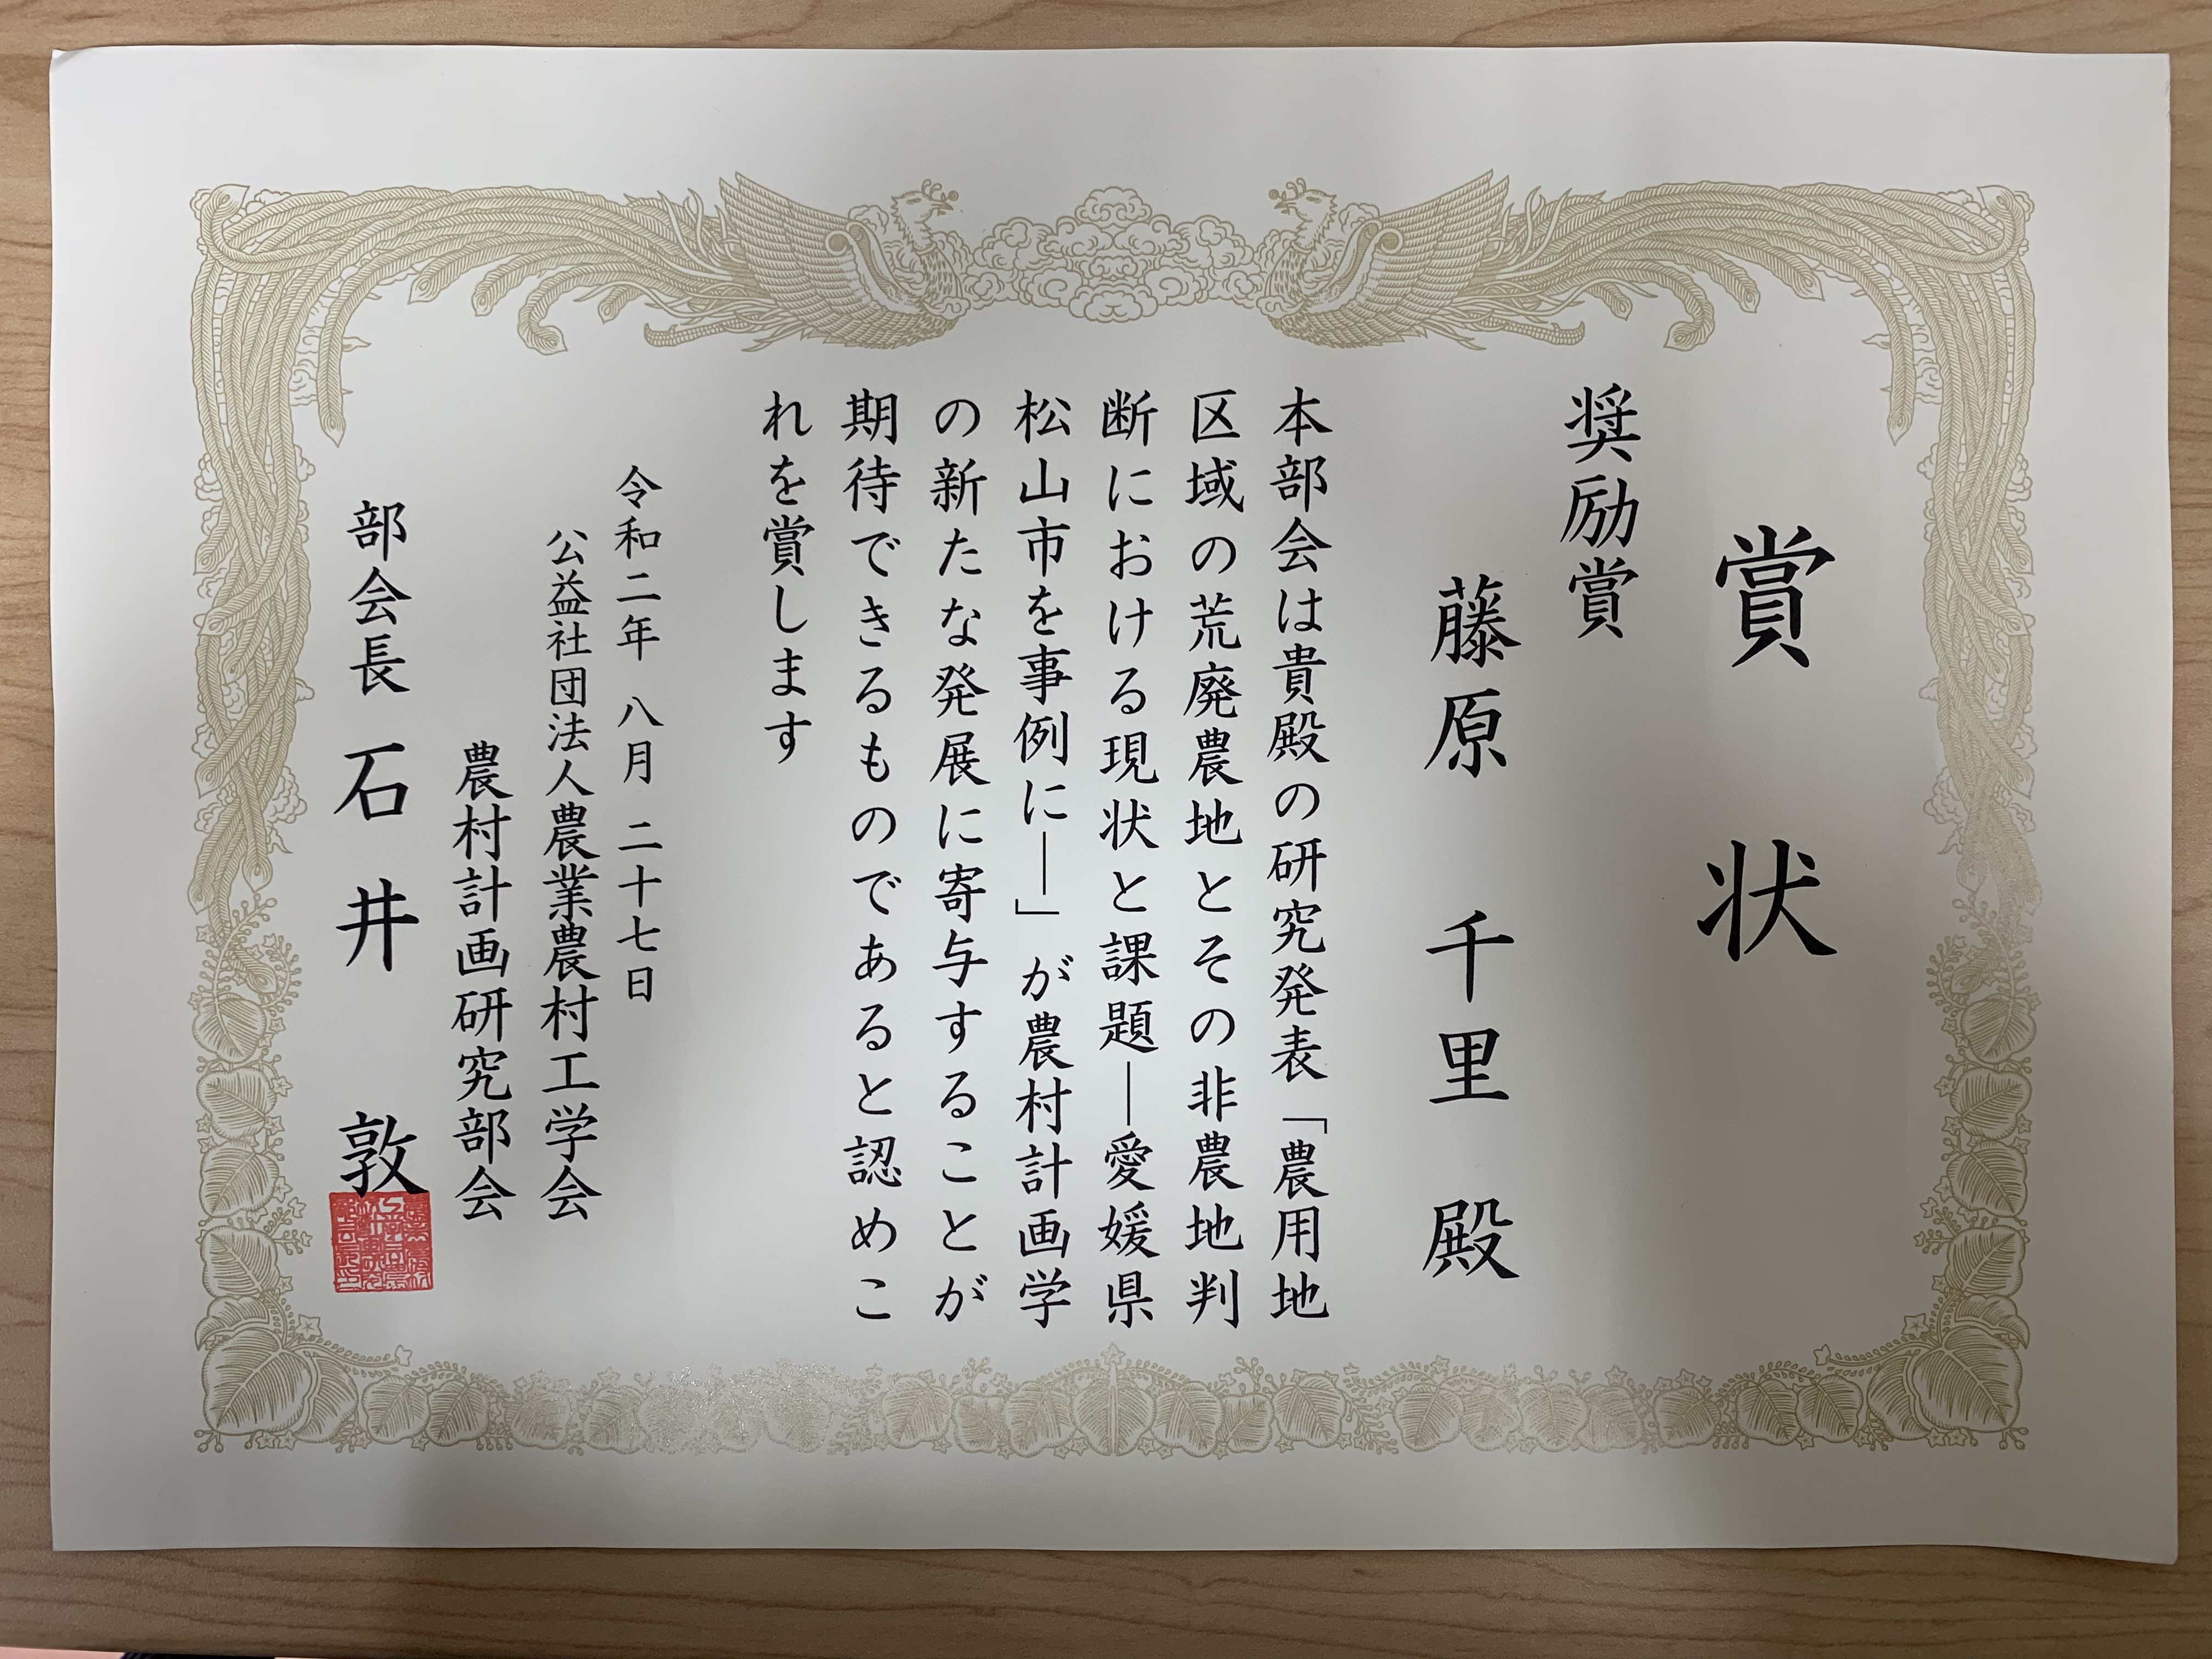 賞状
奨励賞
藤原 千里 殿
本部会は貴殿の研究発表「農用地
区域の荒廃農地とその非農地判
断における現状と課題―愛媛県
松山市を事例に―」が農村計画学
の新たな発展に寄与することが
期待できるものであると認めこ
れを賞します
令和二年 八月 二十七日
公益社団法人農業農村工学会
農村計画研究部会
部会長 石井 敦